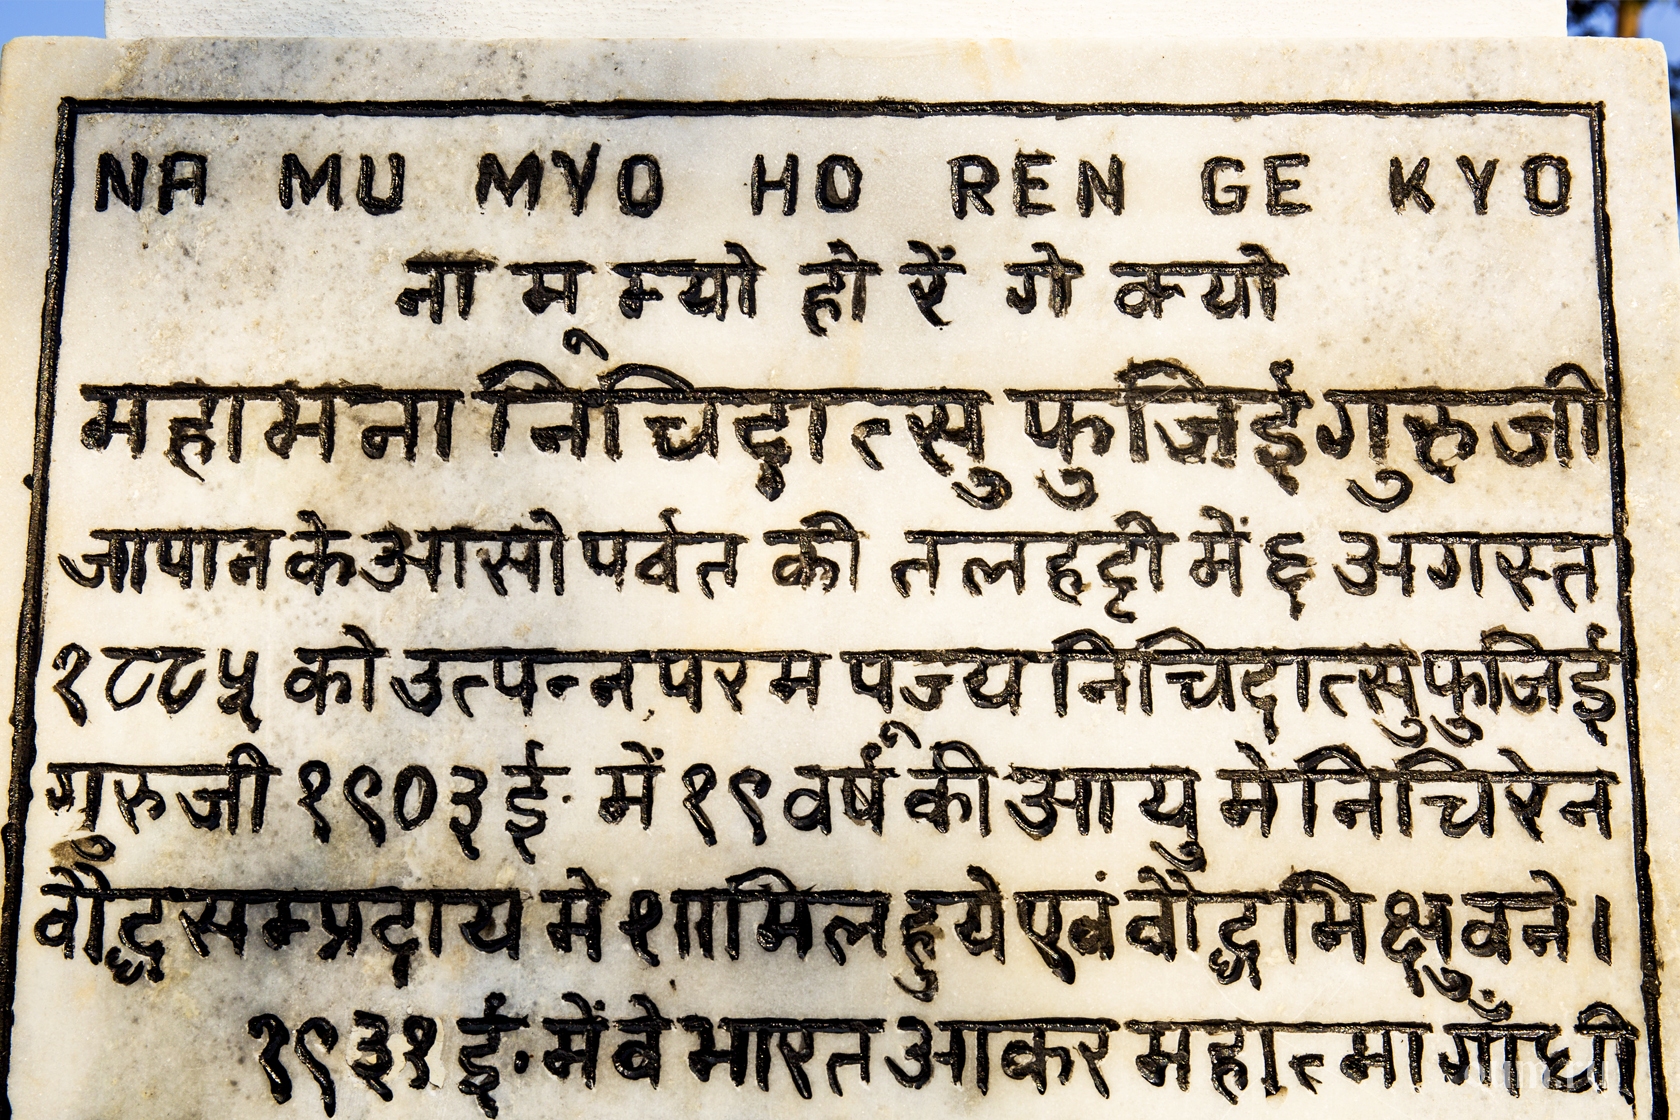 NA MU MYO HO REN GE KYO
ना मू म्यो हो रें गे क्यो
महामना निचिदात्सु फुजिई गुरुजी
जापान के आसो पर्वत की तलहट्टी में ६ अगस्त
१८८५ को उत्पन्न परम पूज्य निचिदात्सु फुजिई
गुरुजी १९०३ ई॰ में १९ वर्ष की आयु मे निचिरेन
वौद्ध सम्प्रदाय मे शामिल हुये एवं वौद्ध भिक्षु वने।
१९३१ ई॰ में वे भारत आकर महात्मा गाँधी